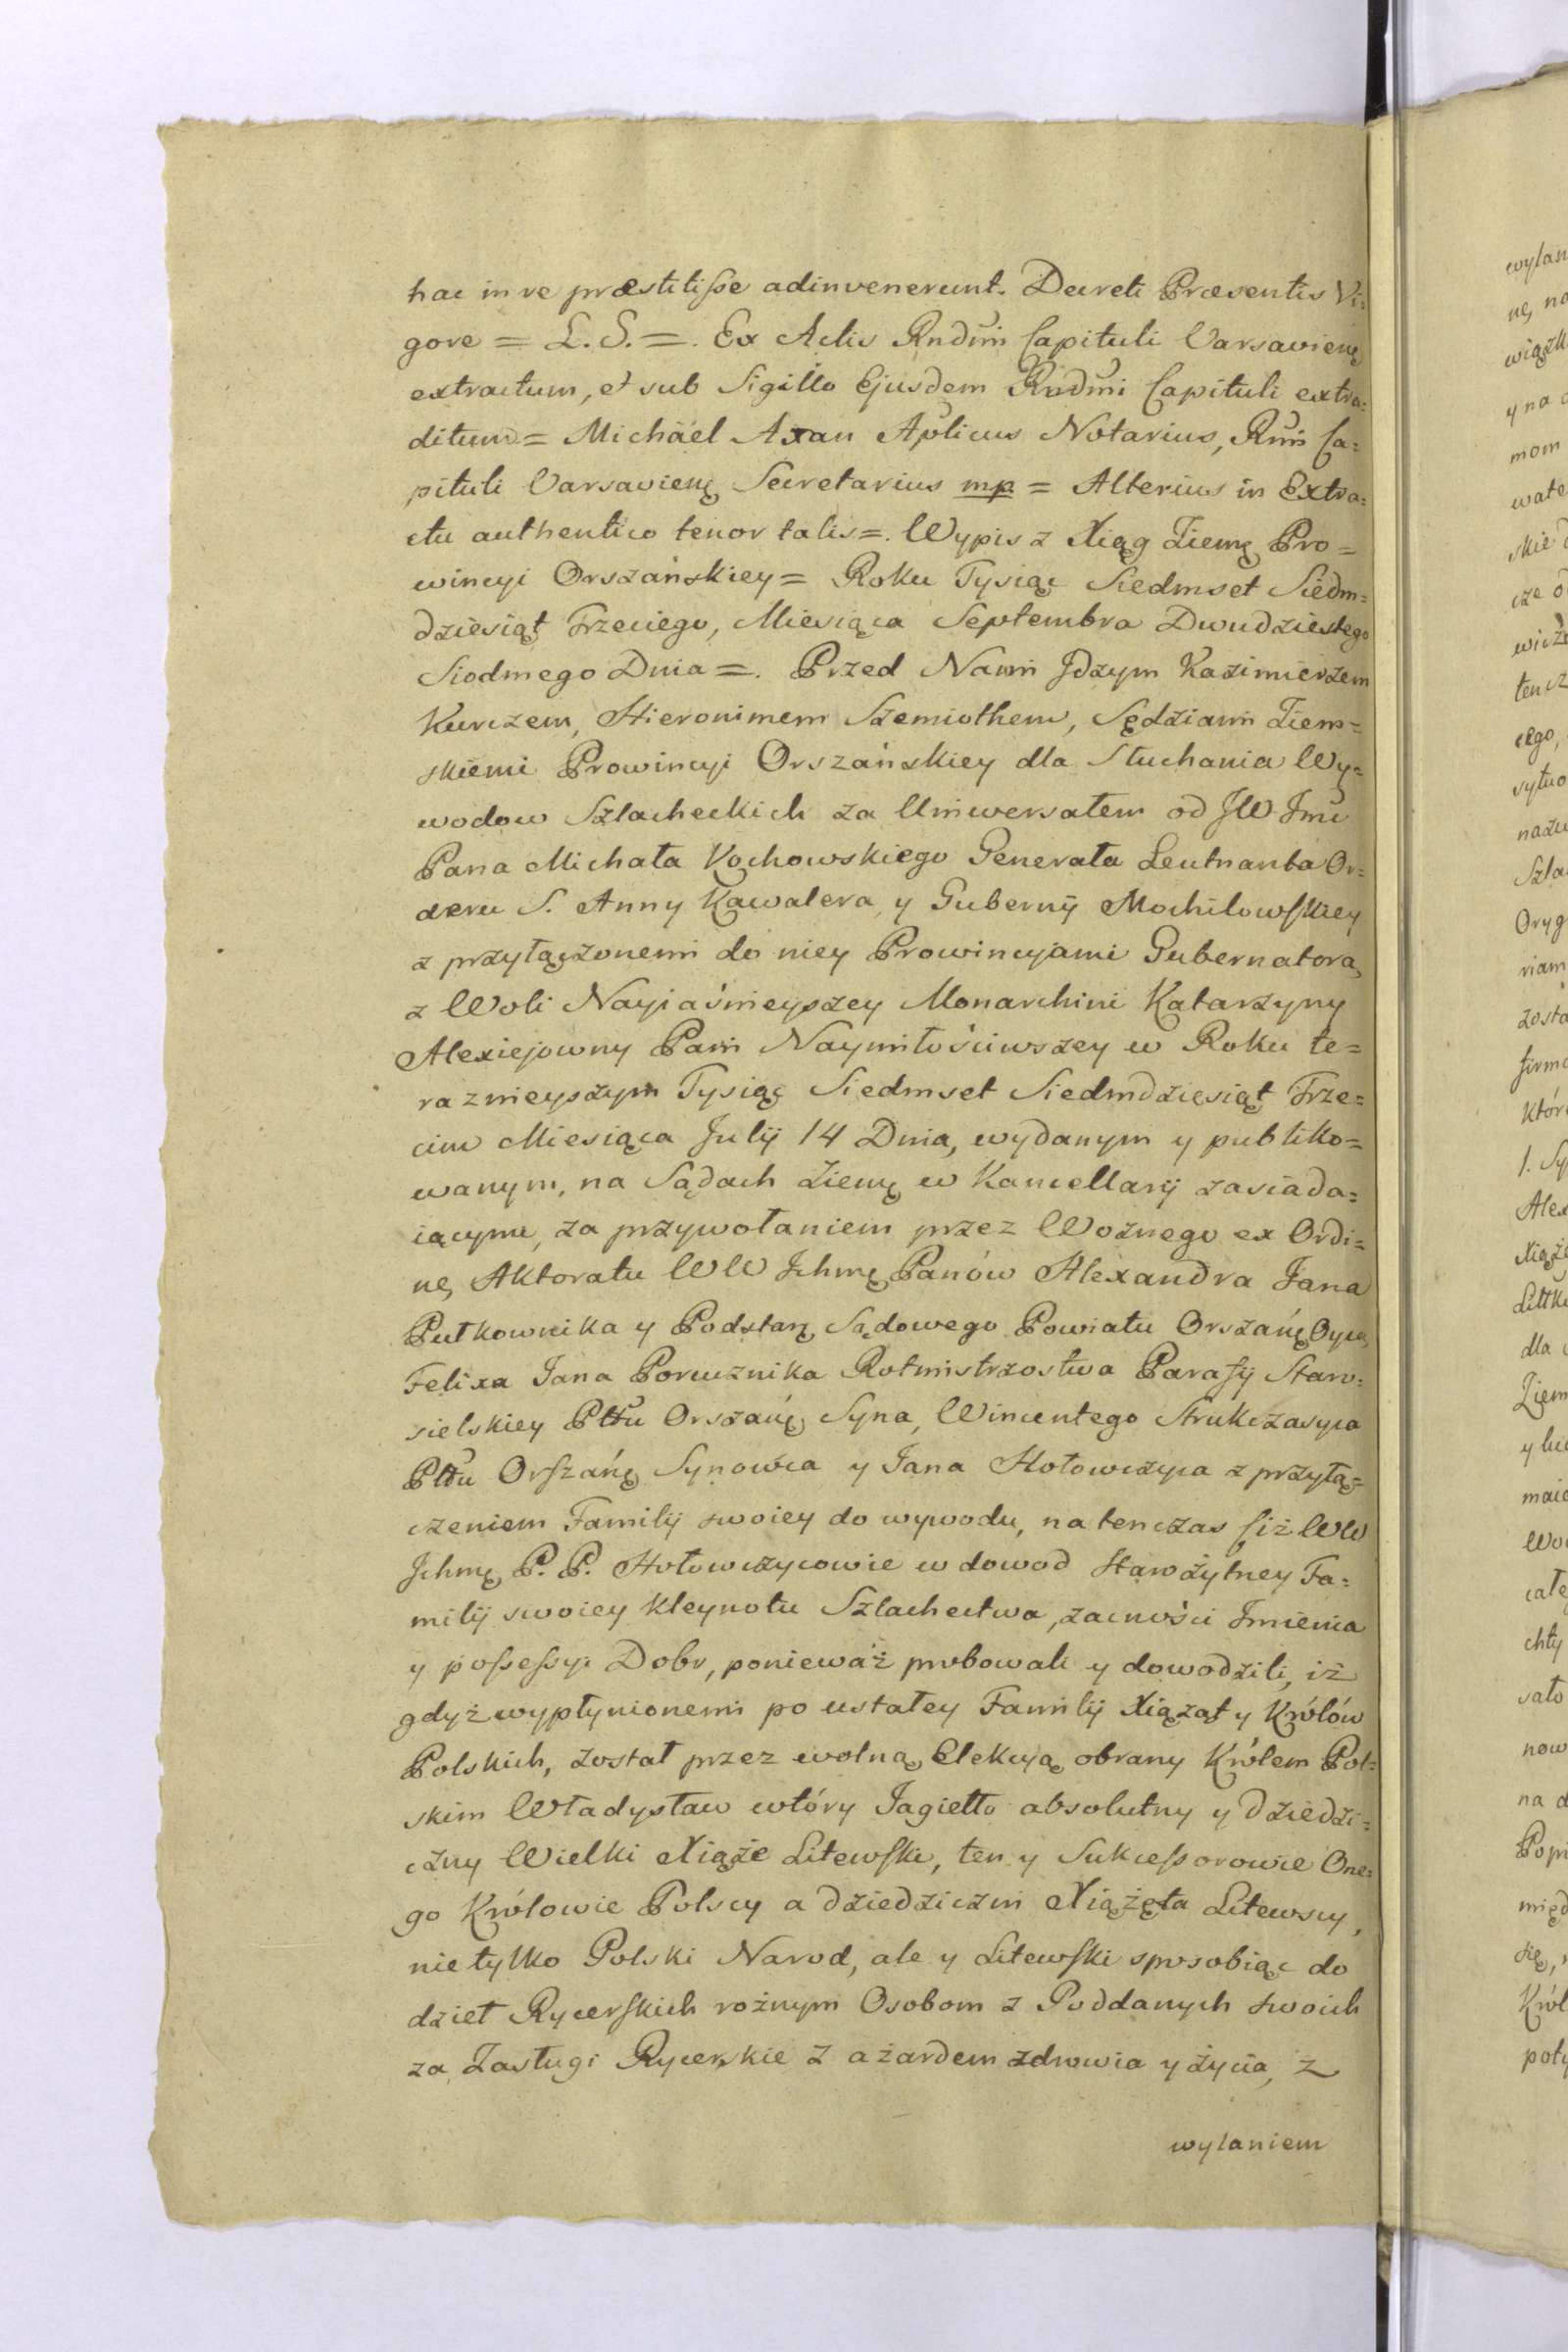 hac in re præstitiſse adinvenerunt. Decreti Præsentis Vi=
gore = L. S. =. Ex Actis Rndmi Capituli Varsavienę
extractum, et sub Sigillo Ejusdem Rndmi Capituli extra=
ditum = Michäel Axan Aplicus Notarius, Rmi Ca=
pituli Varsavienę Secretarius mp = Alterius in Extra=
ctu authentico tenor talis =. Wypis z Xiąg Ziemę Pro=
wincyi Orszańskiey = Roku Tysiąc Siedmset Siedm=
dziesiąt Trzeciego, Miesiąca Septembra Dwudziestego
Siodmego Dnia =. Przed Nami Jdzym Kazimierzem
Kurczem, Hieronimem Szemiothem, Sędziami Ziem=
skiemi Prowincyi Orszańskiey dla Słuchania Wy=
wodow Szlacheckich za Uniwersałem od JW Jmć
Pana Michała Kochowskiego Generała Leutnanta Or=
deru S. Anny Kawalera, y Gubernÿ Mochilowſkiey
z przyłączonemi do niey Prowincyjami Gubernatora,
z Woli Nayjaśnieyszey Monarchini Katarzyny
Alexiejowny Pani Naymiłościwszey w Roku te=
raznieyszym Tysiąc Siedmset Siedmdziesiąt Trze=
cim Miesiąca Julij 14 Dnia, wydanym y publiko=
wanym, na Sądach Ziemę w Kancellarÿ zasiada=
iącymi, za przywołaniem przez Woznego ex Ordi=
ne, Aktoratu WW Jchmę Panów Alexandra Jana
Pułkownika y Podstarę Sądowego Powiatu Orszańę Oyca,
Felixa Jana Porucznika Rotmistrzostwa Parafÿ Staro=
sielskiey Pttu Orszańę Syna, Wincentego Strukczasyca
Pttu Orſzańę Synowca y Jana Hołowczyca z przyłą=
czeniem Familÿ swoiey do wywodu, natenczas ſiż WW
Jchmę P. P. Hołowczycowie w dowod Starożytney Fa=
milÿ swoiey Kleynotu Szlachectwa, zacności Jmienia
y poſseſsyi Dobr, ponieważ probowali y dowodzili, iż
gdyż wypłynionemi po ustałey Familÿ Xiążąt y Królów
Polskich, został przez wolną Elekcyą obrany Królem Pol=
skim Władysław wtóry Jagiełło absolutny y dziedzi=
czny Wielki Xiąże Litewſki, ten y Sukceſsorowie One=
go Królowie Polscy a dziedziczni Xiążęta Litewscy,
nie tylko Polski Narod, ale y Litewſki sposobiąc do
dzieł Rycerſkich rożnym Osobom z Poddanych swoich
za Zasługi Rycerskie z ażardem zdrowia y życia, z
wylaniem